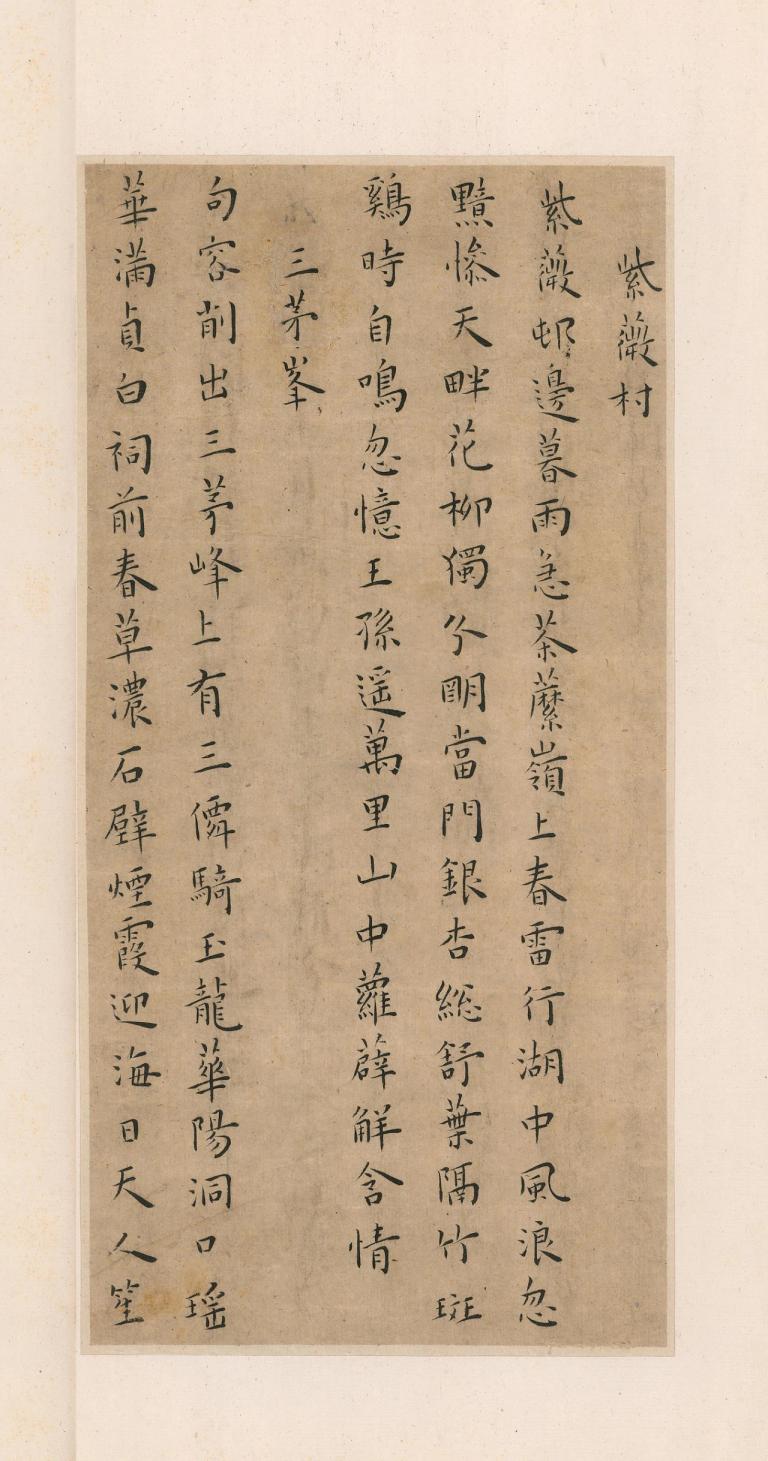 紫薇村
紫薇邨邊暮雨急荼蘼嶺上春雷行湖中風浪忽
黲慘天畔花柳獨分明當門銀杏總舒葉隔竹斑
鷄時自鳴忽憶王孫遥萬里山中蘿薜解含情
三茅峯
句容削出三茅峰上有三僊騎玉龍華陽洞口瑶
華滿貞白祠前春草濃石壁煙霞迎海日天人笙